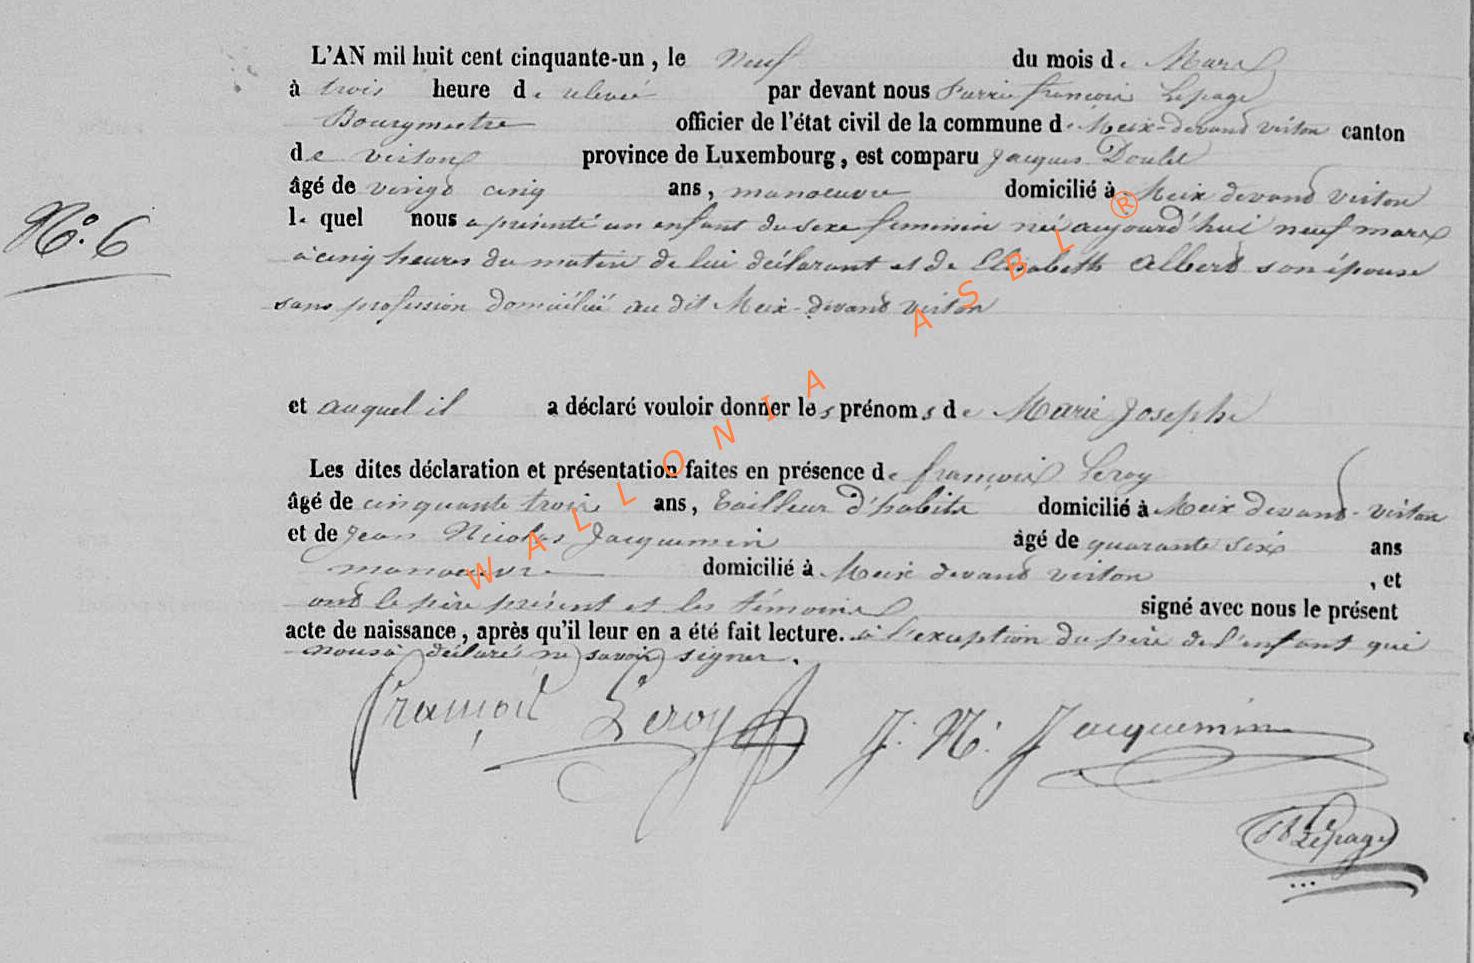 L'AN mil huit cent cinquante-un, le neuf du mois de Mars
à trois heure de relevée par devant nous Pierre françois Lepage
Bourgmestre officier de l'état civil de la commune de Meix-devand virton canton
de virton province de Luxembourg, est comparu Jacques Doulet
âgé de vingt cinq ans, manoeuvre domicilié à Meix devand virton
N.° 6
le quel nous a présenté un enfant du sexe feminin né aujourd'hui neuf mars
à cinq heures du matin de lui déclarant et de Elisabeth Albert son épouse
sans profession domiciliée au dit Meix-devand virton
et auquel il a déclaré vouloir donner les prénoms de Marie Josephe
Les dites déclaration et présentation faites en présence de françois Leroy
âgé de cinquante trois ans, tailleur d'habits domicilié à Meix devand-virton
et de Jean Nicolas Jacquemin âgé de quarante six ans
manoeuvre domicilié à Meix devand virton , et
ont le père présent et les témoins signé avec nous le présent
acte de naissance, après qu'il leur en a été fait lecture. à l'exception du père de l'enfant qui
nous à déclaré ne savoir signer.
françois Leroy J. N. Jacquemin
Lepage
WALLONIA ASBL ®